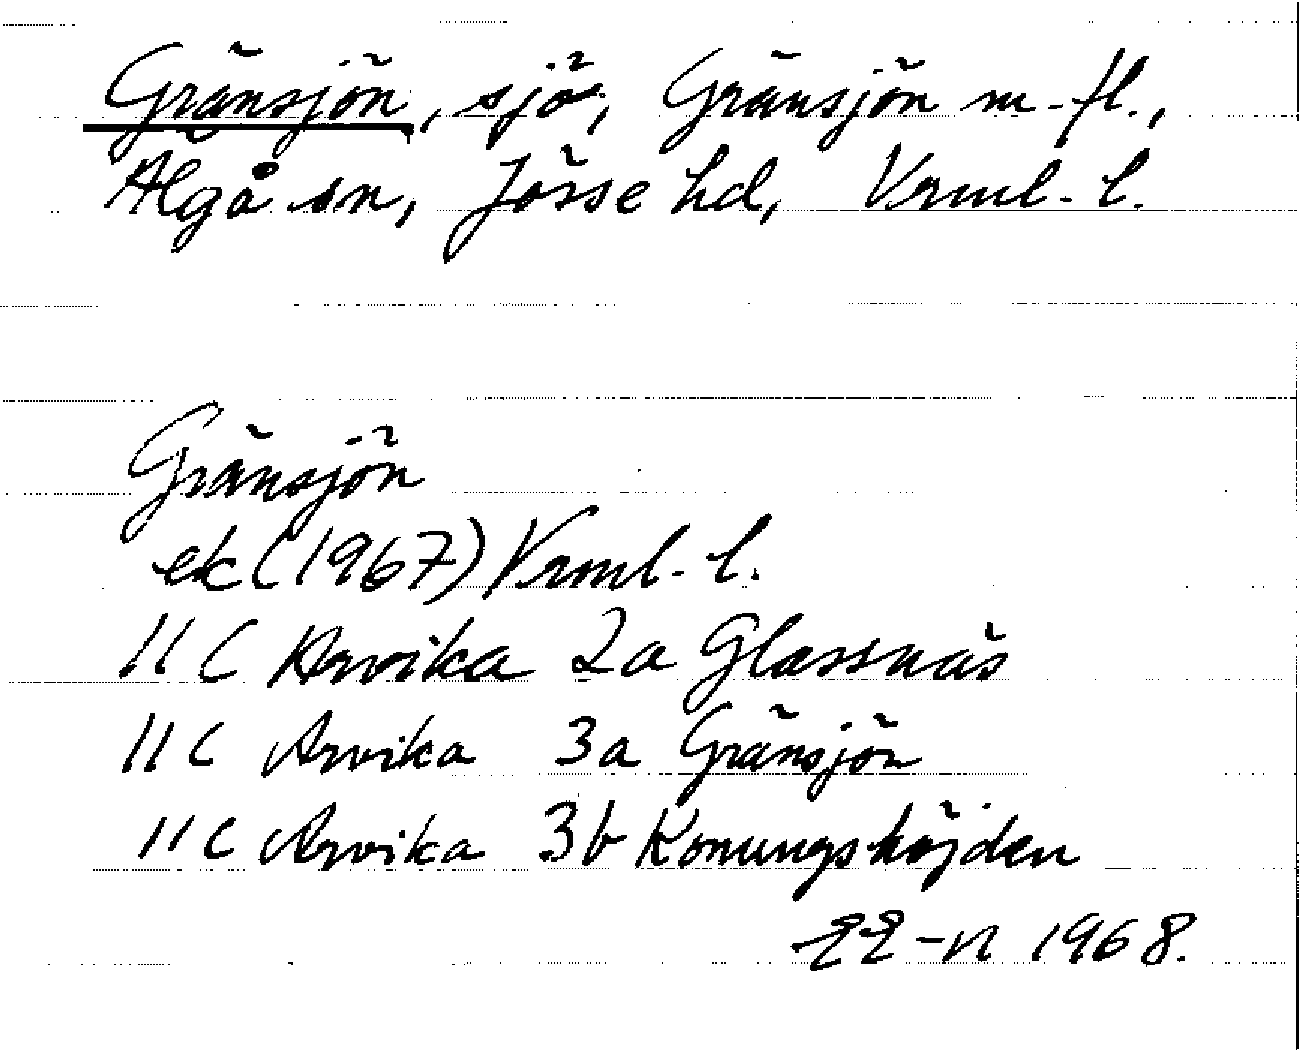 Gränsjön, sjö, Gränsjön m.fl.,
Älgå sn, Jösse hd, Vrml. l.
Gränsjön
ek (1967) Vrml. l.
11 C Arvika 2a Glassnäs
11 C Arvika 3a Gränsjön
11 C Arvika 3b Konungshöjden
-n 1968.